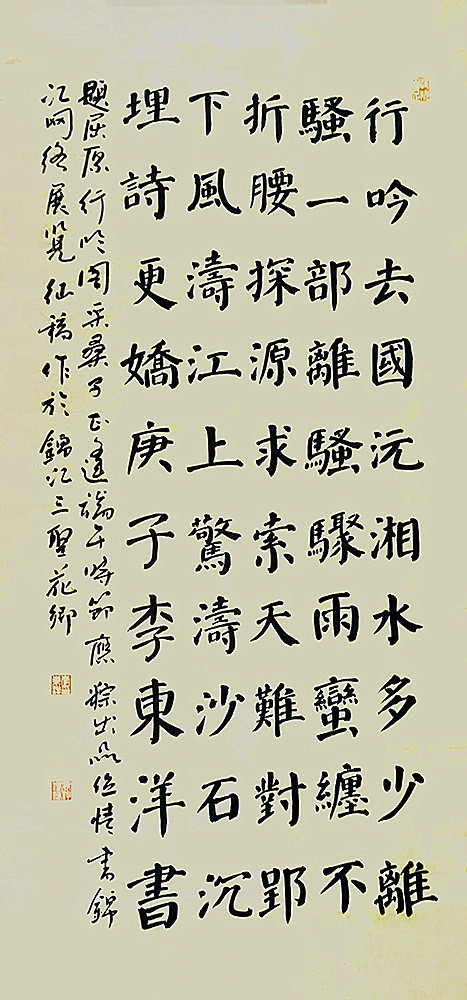 行吟去國沅湘水多少離
騷一部離騷驟雨蠻纏不
折腰探源求索天難對郢
下風濤江上驚濤沙石沉
埋詩更嬌庚子李東洋書
題屈原行吟圖采桑子正逢端午時節應粽出品促情書錦
江网络展覽征稿作於錦江三聖花鄉